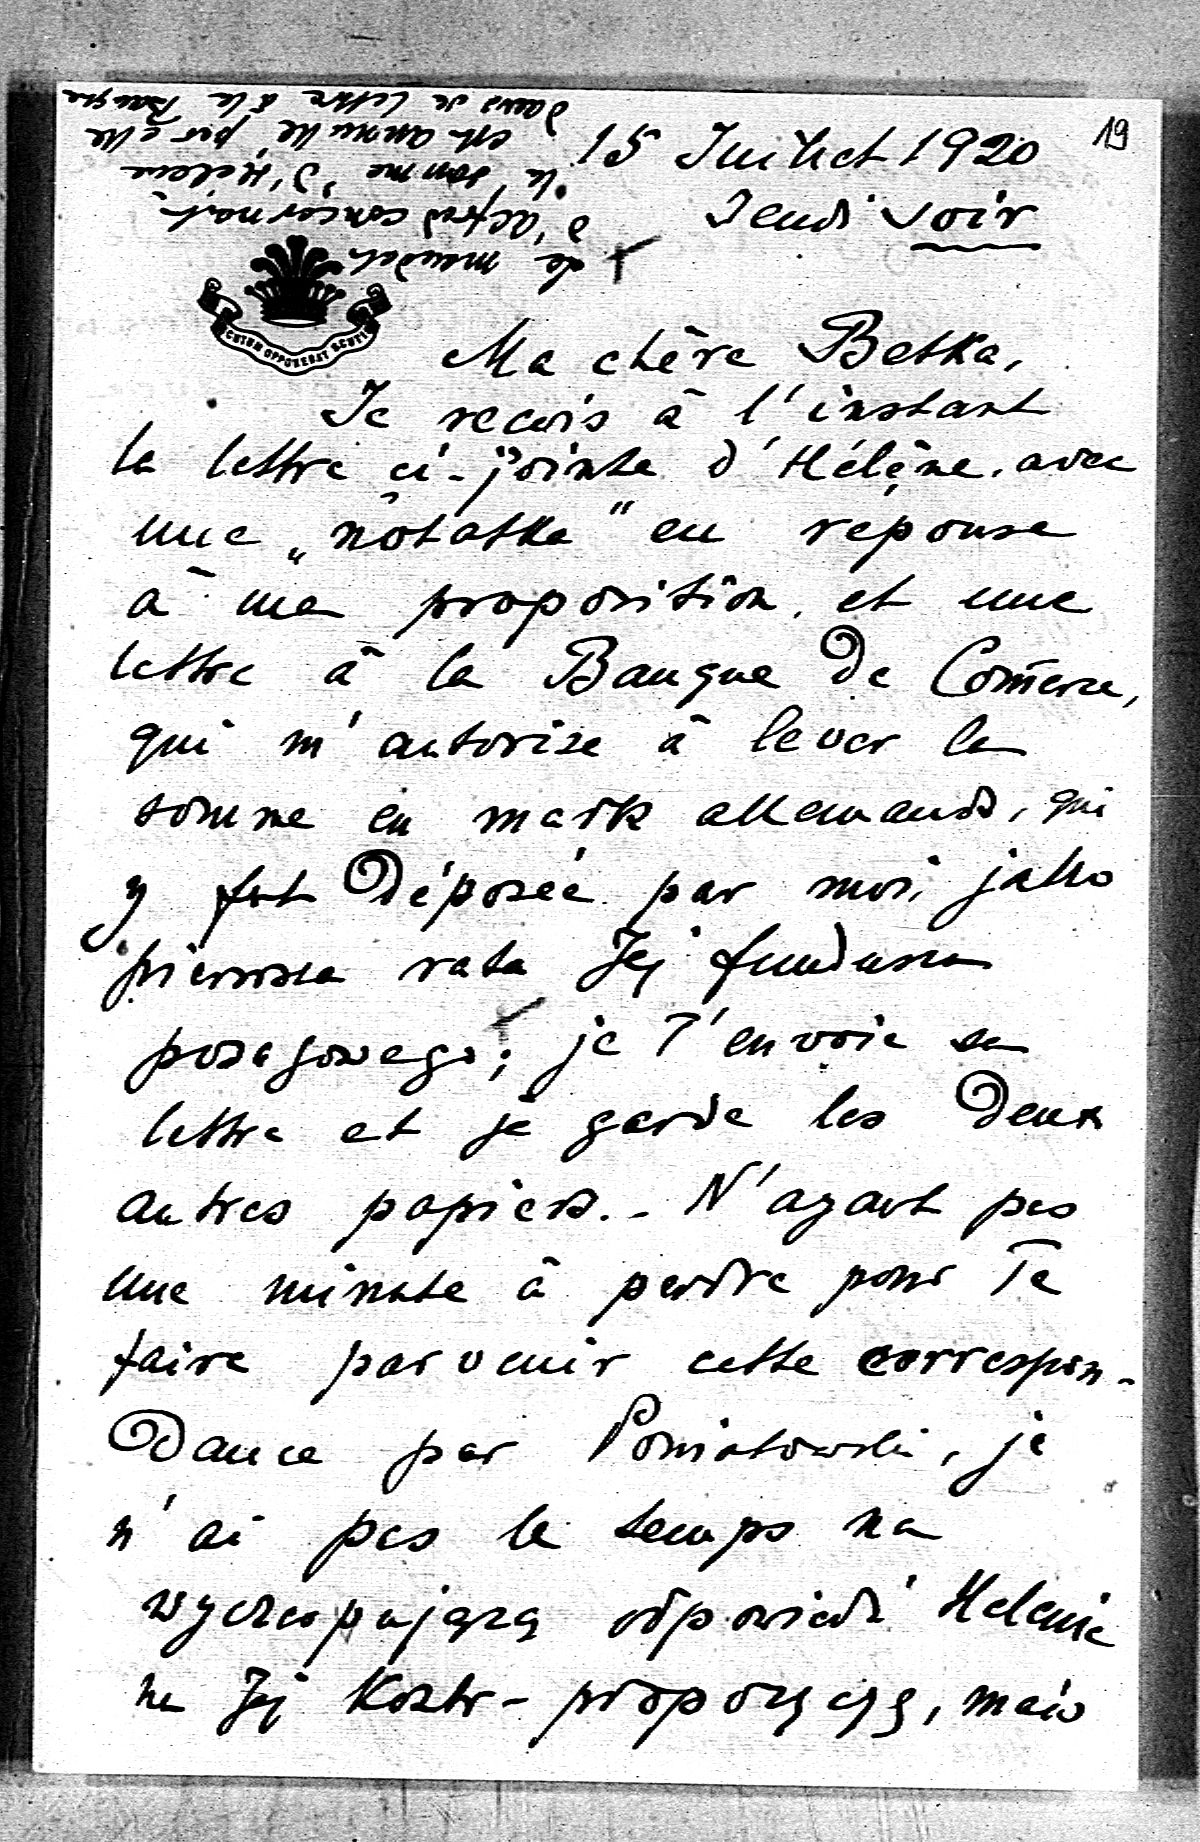 19
15 Juillet 1920
Jeudi soir
le mandat
d'Alfred concernant
la somme d'Hélène
est annullé, par elle
dans sa lettre à la Banque
SCUTUM OPPONEBAT SCUTIS
Ma chère Betka,
Je reçois à l'instant
la lettre ci-jointe d'Hélène, avec
une „notatka" en réponse
à ma proposition, et une
lettre à la Banque de Com̄erce,
qui m'autorise à lever la
somme en mark allemands, qui
y fut déposée par moi, jako
pierwsza rata Jej funduszu
posagowego; je T'envoie sa
lettre et je garde les deux
autres papiers. - N'ayant pas
une minute à perdre pour Te
faire parvenir cette correspon-
dance par Poniatowski, je
n'ai pas le temps na
wyczerpującą odpowiedź Helenie
na Jej kontr-propozycyę, mais